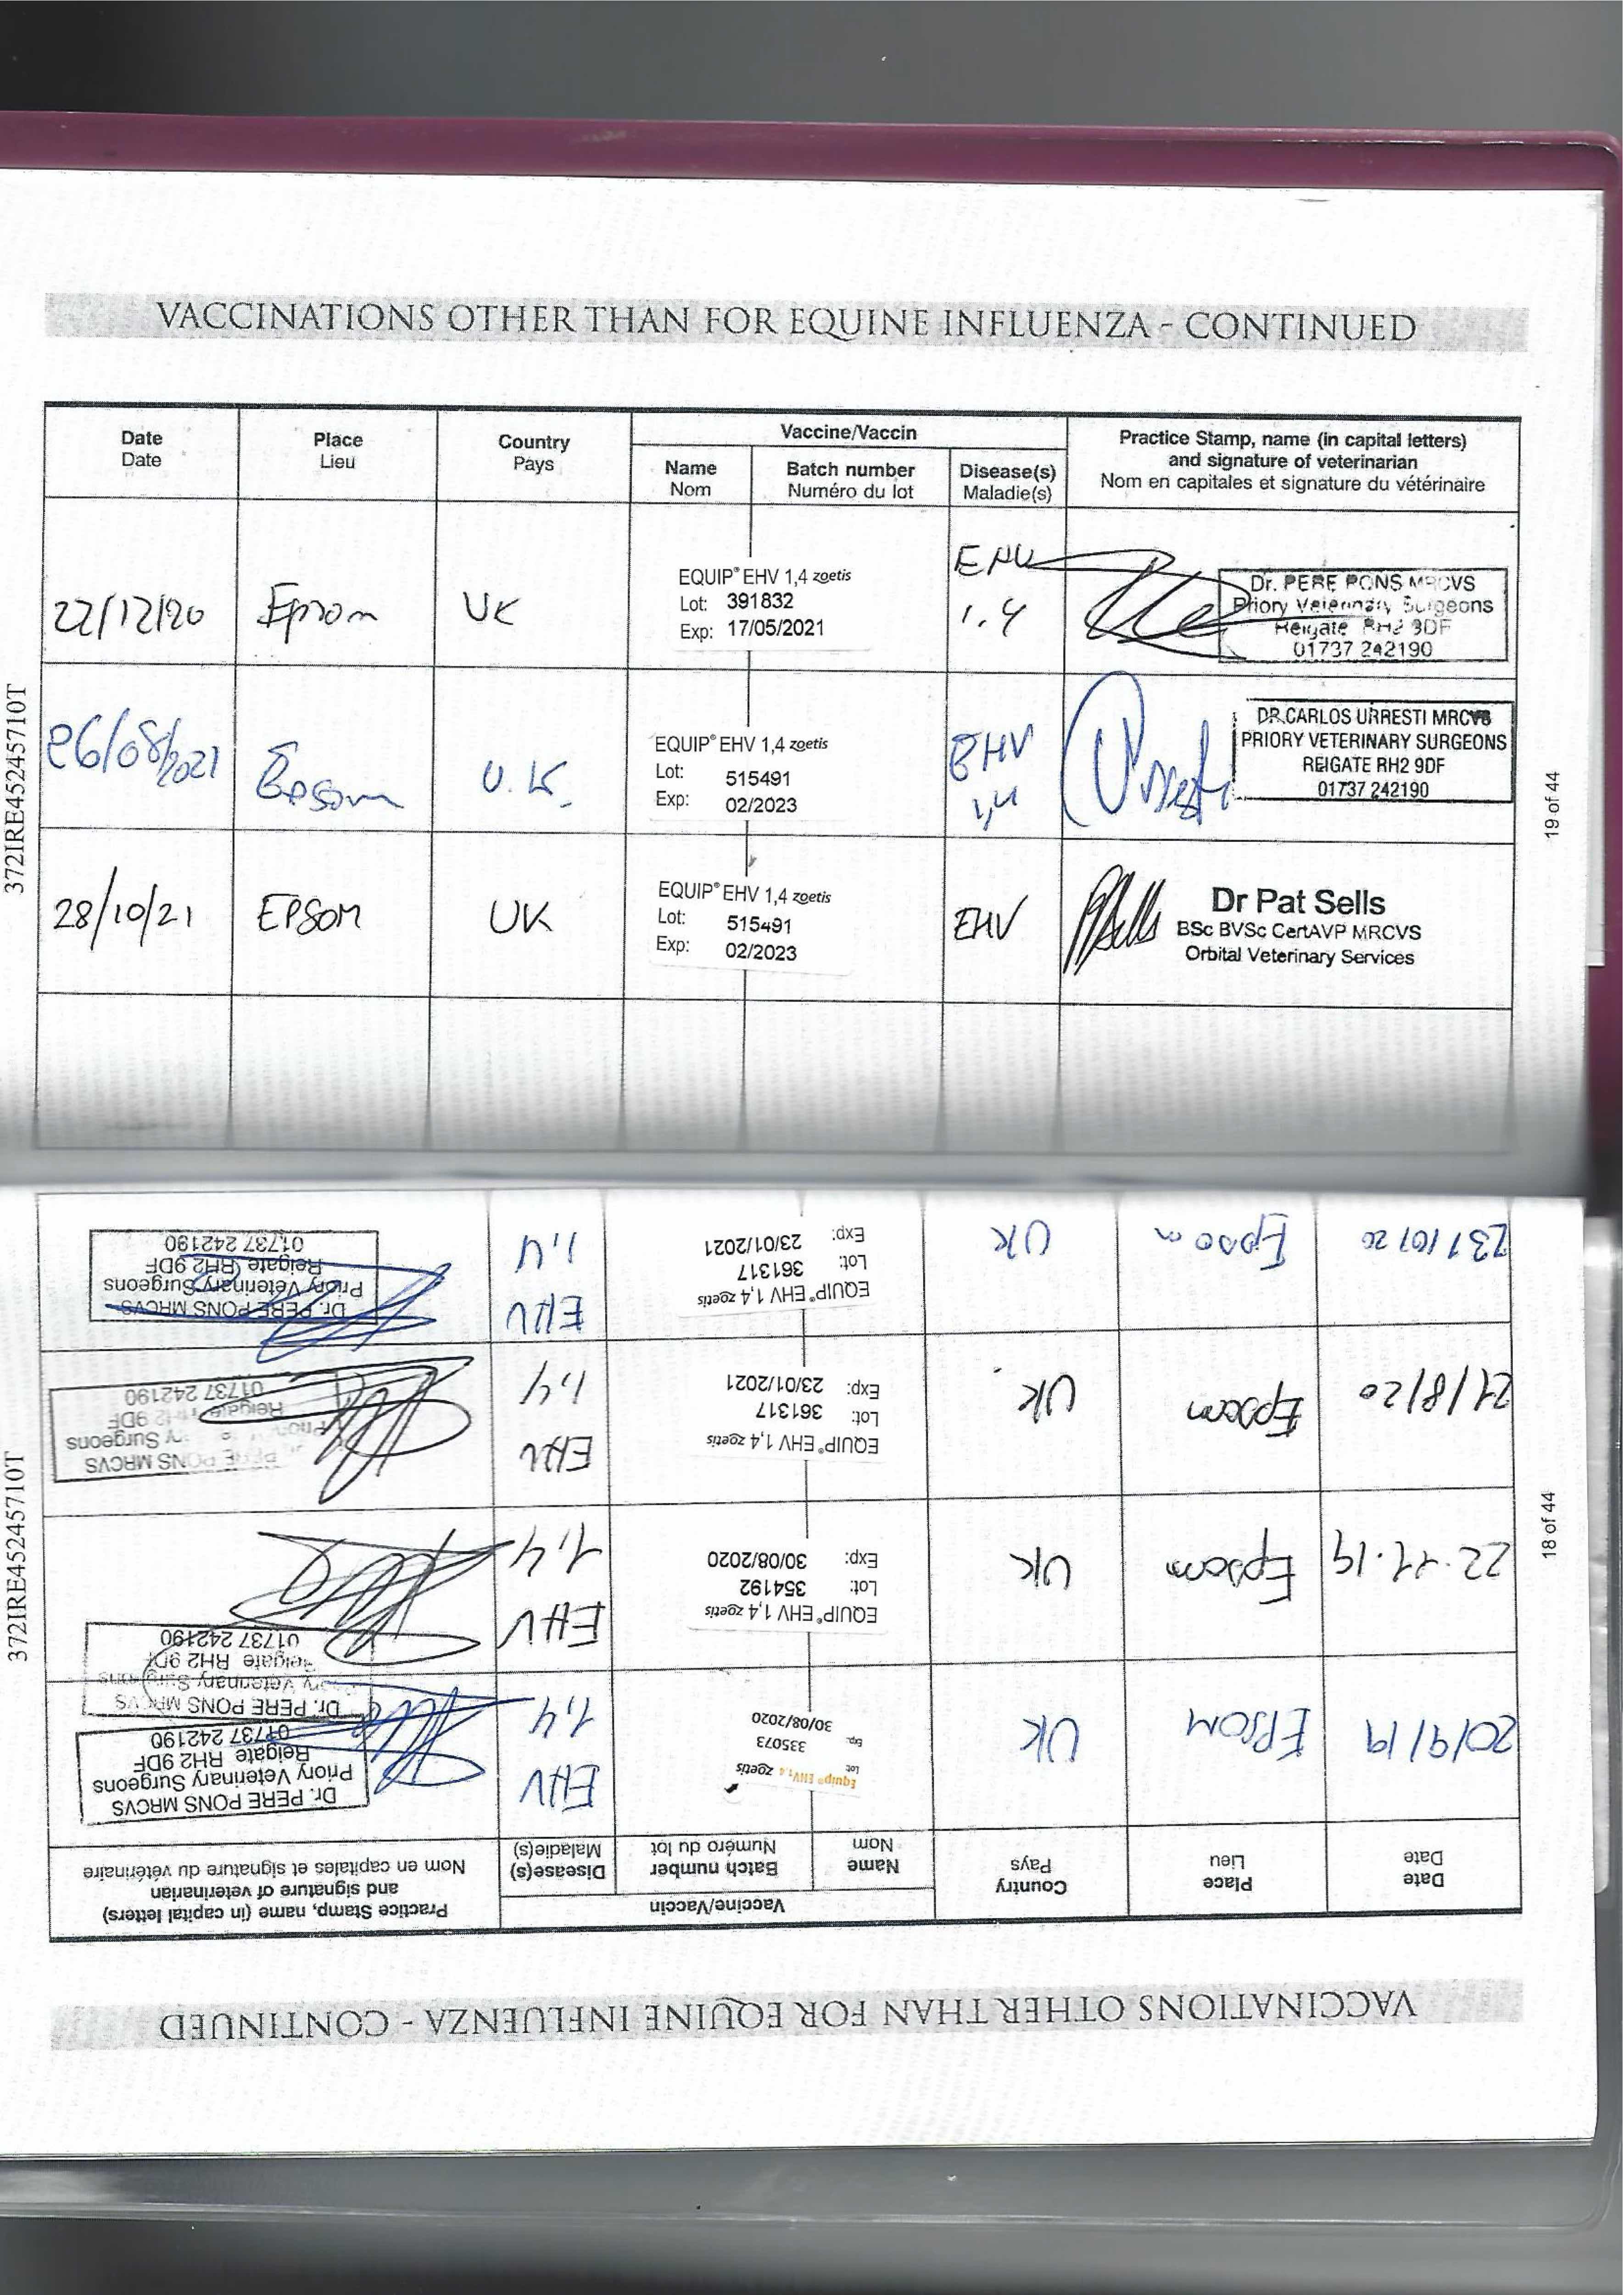 VACCINATIONS OTHER THAN FOR EQUINE INFLUENZA - CONTINUED
Date
Date
Place
Lieu
Country
Pays
Vaccine/Vaccin
Name
Nom
Batch number
Numéro du lot
Disease(s)
Maladie(s)
Practice Stamp, name (in capital letters)
and signature of veterinarian
Nom en capitales et signature du vétérinaire
22/12/20
Epsom
UK
EQUIP® EHV 1,4 zoetis
Lot: 391832
Exp: 17/05/2021
EHV
1.4
Dr. PERE PONS MRCVS
Priory Veterinary Surgeons
Reigate RH2 9DF
01737 242190
26/08/2021
Epsom
U.K.
EQUIP® EHV 1,4 zoetis
Lot: 515491
Exp: 02/2023
EHV
1,4
DR.CARLOS URRESTI MRCVS
PRIORY VETERINARY SURGEONS
REIGATE RH2 9DF
01737 242190
28/10/21
EPSOM
UK
EQUIP® EHV 1,4 zoetis
Lot: 515491
Exp: 02/2023
EHV
PSells
Dr Pat Sells
BSc BVSc CertAVP MRCVS
Orbital Veterinary Services
372IRE45245710T
19 of 44
VACCINATIONS OTHER THAN FOR EQUINE INFLUENZA - CONTINUED
Date
Date
Place
Lieu
Country
Pays
Vaccine/Vaccin
Name
Nom
Batch number
Numéro du lot
Disease(s)
Maladie(s)
Practice Stamp, name (in capital letters)
and signature of veterinarian
Nom en capitales et signature du vétérinaire
20/9/19
EPSOM
UK
Equip® EHV1,4 zoetis
Lot 335073
Exp 30/08/2020
EHV
1,4
Dr. PERE PONS MRCVS
Priory Veterinary Surgeons
Reigate RH2 9DF
01737 242190
22.11.19
Epsom
UK
EQUIP® EHV 1,4 zoetis
Lot: 354192
Exp: 30/08/2020
EHV
1,4
Dr. PERE PONS MRCVS
Priory Veterinary Surgeons
Reigate RH2 9DF
01737 242190
21/8/20
Epsom
UK.
EQUIP® EHV 1,4 zoetis
Lot: 361317
Exp: 23/01/2021
EHV
1,4
PERE PONS MRCVS
Surgeons
Reigate 9DF
01737 242190
Epsom
UK
EQUIP® EHV 1,4 zoetis
Lot: 361317
Exp: 23/01/2021
EHV
1,4
Dr. PERE PONS MRCVS
Priory Veterinary Surgeons
Reigate RH2 9DF
01737 242190
372IRE45245710T
18 of 44